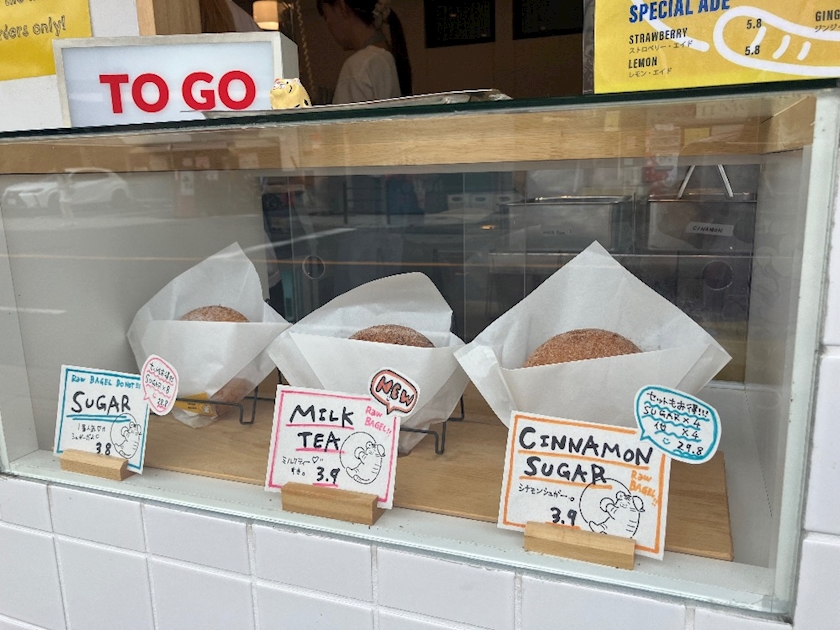 only!
orders only!
TO GO
SPECIAL ADE
STRAWBERRY 5.8
ストロベリー・エイド
LEMON 5.8
レモン・エイド
GING
ジンジ
CINNAMON
RAW BAGEL DONUT
SUGAR
3.8
SUGAR×8
MILK
TEA
RAW
BAGEL!!
ミルクティー♡
3.9
NEW
CINNAMON
SUGAR
RAW
BAGEL!!
シナモンシュガー。
3.9
セットもお得!!!
SUGAR×4
他 ×4
29.8